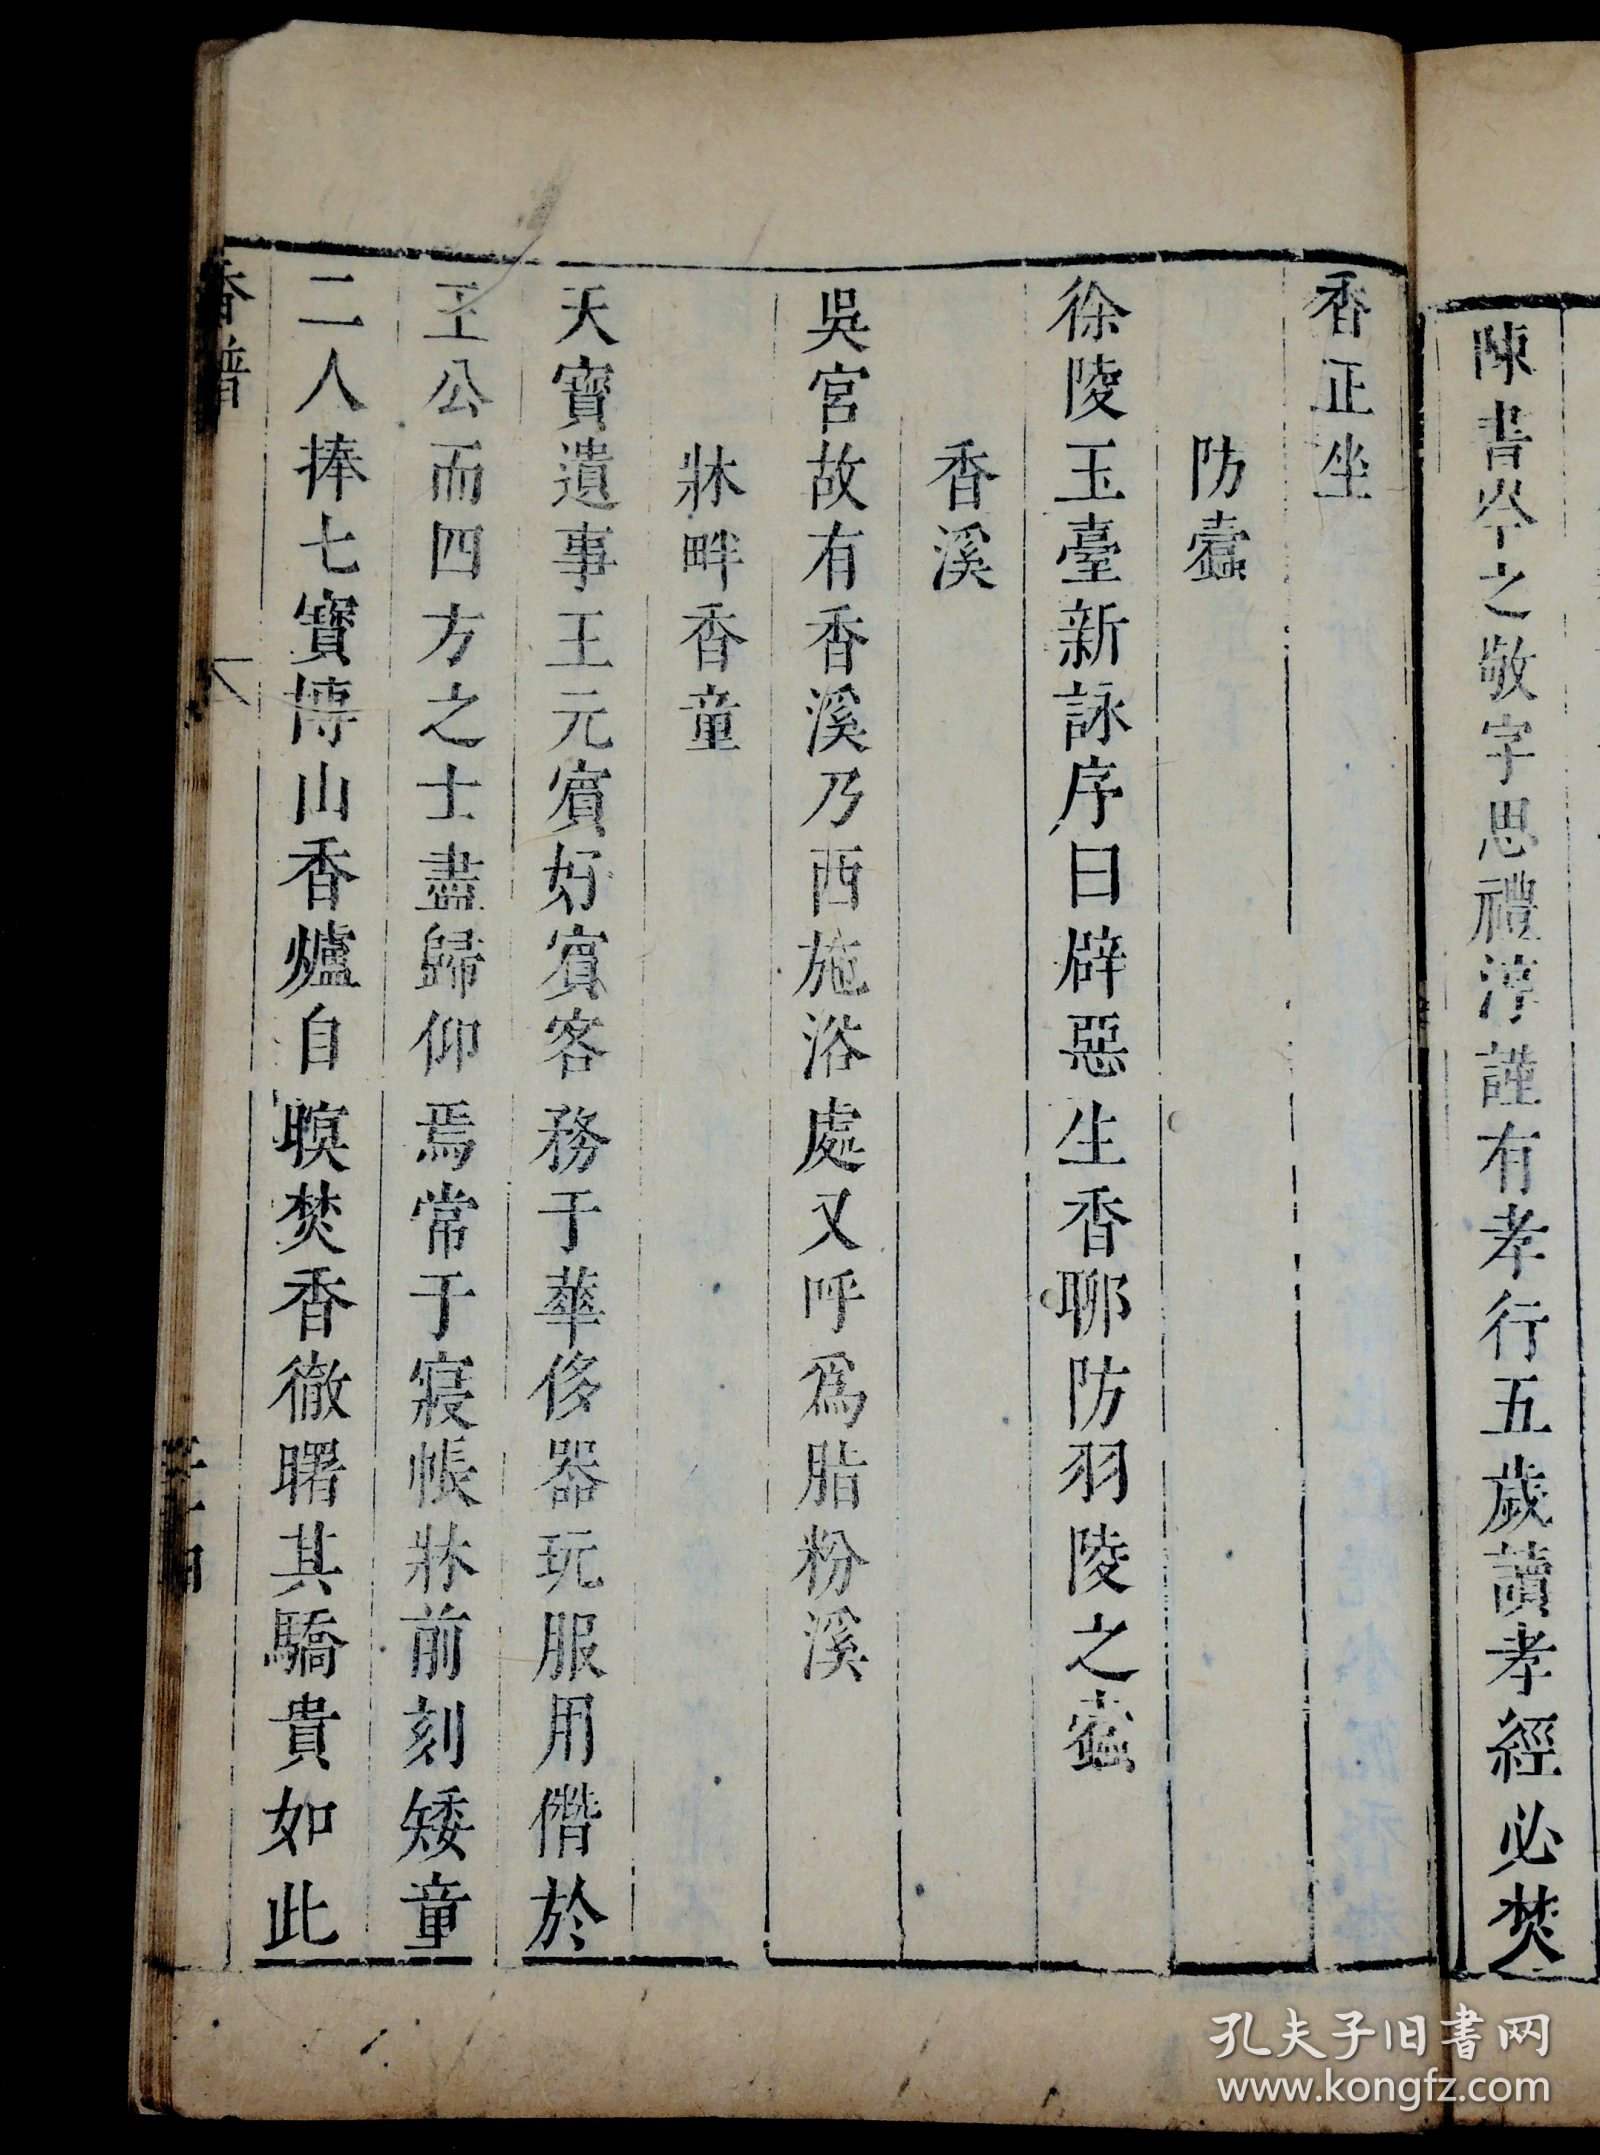 陳書岑之敬字思禮淳謹有孝行五歲讀孝經必焚
香正坐
防蠹
徐陵玉臺新詠序曰辟惡生香聊防羽陵之蠹
香溪
吳宮故有香溪乃西施浴處又呼為脂粉溪
牀畔香童
天寶遺事王元賓好賓客務于華侈器玩服用僭於
王公而四方之士盡歸仰焉常于寢帳牀前刻矮童
二人捧七寶博山香爐自暝焚香徹曙其驕貴如此
香譜
孔夫子旧书网
www.kongfz.com